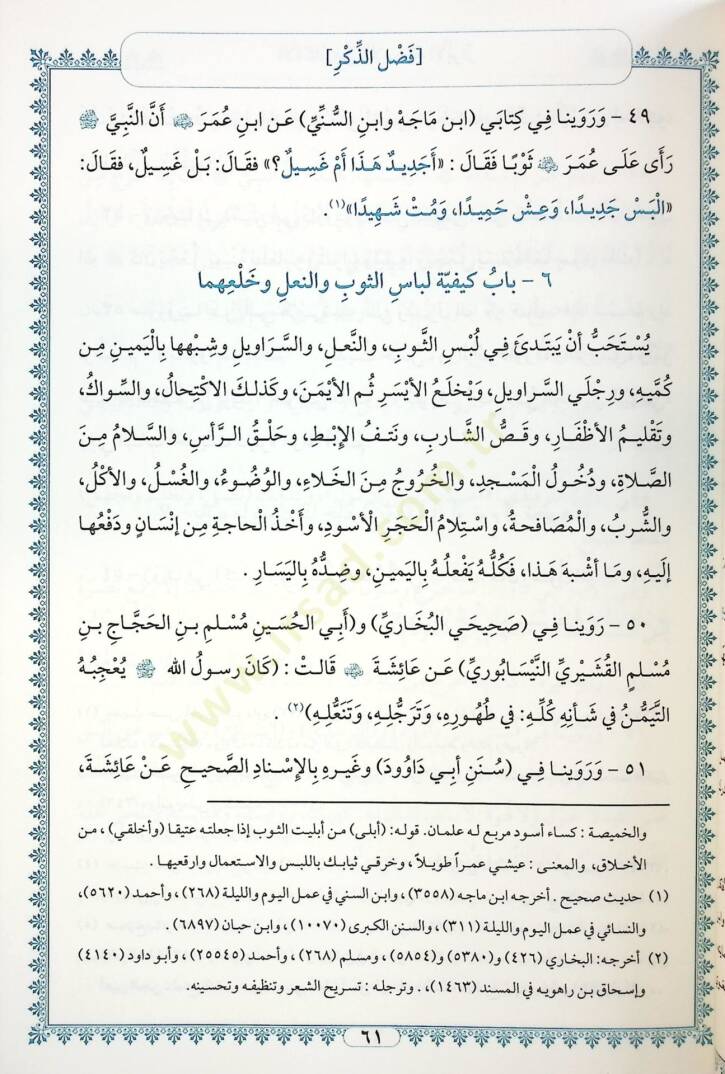 [فَضْل الذِّكْرِ]
٤٩ - وَرَوَينا فِي كِتابَي (ابن مَاجَهْ وابنِ السُّنِّيِّ) عَن ابنِ عُمَرَ ﵄ أَنَّ النَّبِيَّ ﷺ
رَأى عَلَى عُمَرَ ﵁ ثَوْبًا فَقَالَ : «أَجَدِيدٌ هَذَا أَمْ غَسِيلٌ؟» فقَالَ: بَلْ غَسِيلٌ، فقَالَ:
«الْبَسْ جَدِيدًا، وَعِشْ حَمِيدًا، وَمُتْ شَهِيدًا»(١).
٦ - بابُ كيفيّة لباسِ الثوبِ والنعلِ وخَلْعِهما
يُسْتَحَبُّ أنْ يَبْتَدئَ فِي لُبْسِ الثَّوبِ، والنَّعلِ، والسَّراويلِ وشِبْهها بِالْيَمينِ مِن
كُمَّيهِ، ورِجْلَي السَّراويلِ، وَيْخلَعُ الأيْسرَ ثُم الأيْمَنَ، وكَذلكَ الاكْتِحالُ، والسِّواكُ،
وتَقْليمُ الأظْفَارِ، وقَصُّ الشَّاربِ، ونَتفُ الإبْطِ، وحَلْقُ الرَّأسِ، والسَّلامُ مِنَ
الصَّلاةِ، ودُخُولُ الْمَسْجدِ، والخُرُوجُ مِنَ الخَلاءِ، والوُضُوءُ، والغُسْلُ، والأكْلُ،
والشُّربُ، والْمُصَافحةُ، واسْتِلامُ الْحَجَرِ الأسْودِ، وأَخْذُ الْحاجةِ مِن إنْسَانٍ ودَفْعُها
إلَيهِ، ومَا أشْبهَ هَذا، فَكُلُّهُ يَفْعلُهُ بِاليمينِ، وضِدُّهُ بِاليَسَارِ .
٥٠ - رَوَينا فِي (صَحِيحَي البُخَاريِّ) و(أَبِي الحُسَينِ مُسْلمِ بنِ الحَجَّاجِ بنِ
مُسْلمِ القُشَيْريِّ النَّيْسَابُوريِّ) عَن عَائِشَةَ ﵂ قَالتْ : (كَانَ رسولُ الله ﷺ يُعْجِبُهُ
التَّيَمُّنُ فِي شَأنِه كُلِّهِ: فِي طُهُورِهِ، وَتَرَجُّلِهِ، وَتَنَعُّلِهِ)(٢) .
٥١ - وَرَوَينا فِي (سُنَنِ أبِي دَاوُودَ) وغَيرِهِ بِالإسْنادِ الصَّحيحِ عَنْ عائِشَةَ،
والخميصة : كساء أسود مربع له علمان. قوله: (أبلى) من أبليت الثوب إذا جعلته عتيقا (وأخلقي) ، من
الأخلاق، والمعنى : عيشي عمراً طويلاً، وخرقي ثيابك باللبس والاستعمال وارقعيها.
(١) حديث صحيح . أخرجه ابن ماجه (٣٥٥٨)، وابن السني في عمل اليوم والليلة (٢٦٨) ، وأحمد (٥٦٢٠)،
والنسائي في عمل اليوم والليلة (٣١١) ، والسنن الكبرى (١٠٠٧٠) ، وابن حبان (٦٨٩٧) .
(٢) أخرجه: البخاري (٤٢٦) و(٥٣٨٠) و(٥٨٥٤) ، ومسلم (٢٦٨) ، وأحمد (٢٥٥٤٥) ، وأبو داود (٤١٤٠)
وإسحاق بن راهويه في المسند (١٤٦٣)،. وترجله : تسريح الشعر وتنظيفه وتحسينه.
٦١
www.irsad.com.tr